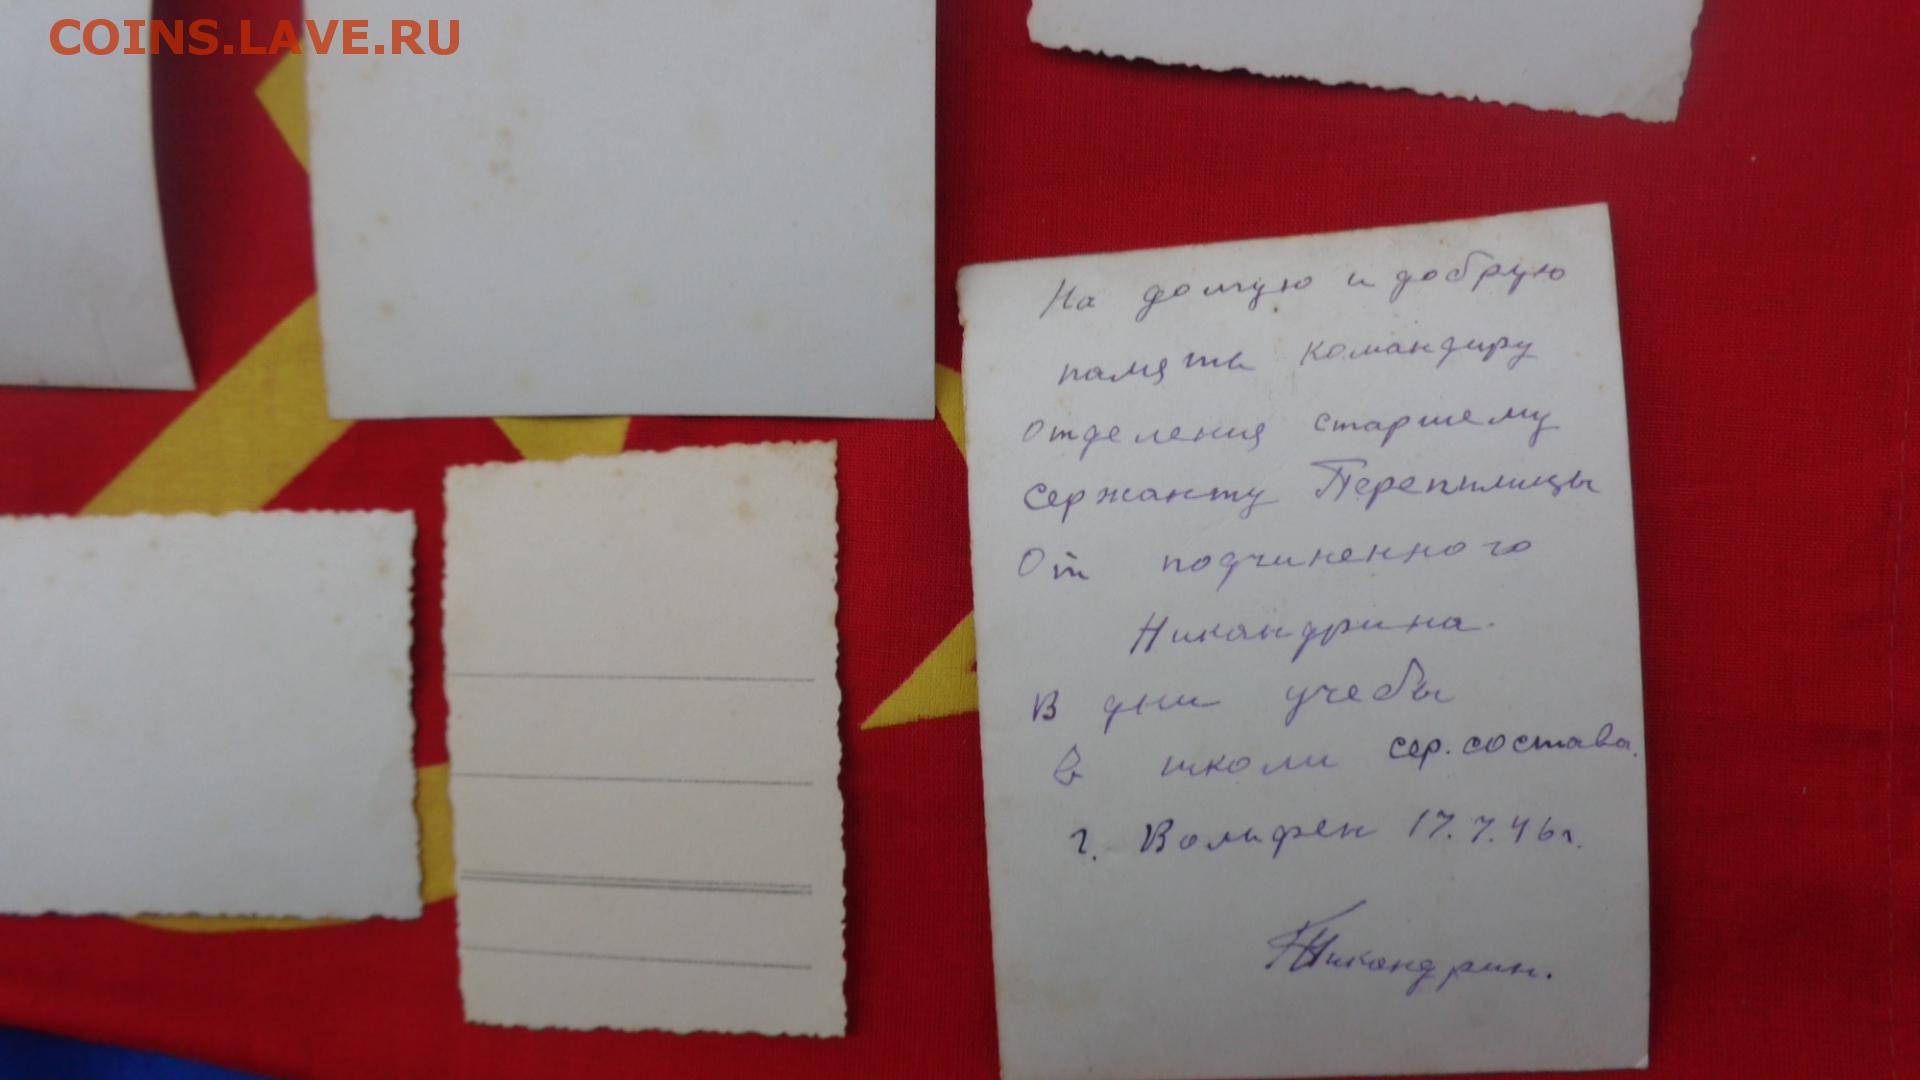 COINS.LAVE.RU
На долгую и добрую
память командиру
Отделения старшему
сержанту Перепилицы
От подчиненного
Никандрина.
В дни учебы
в школи сер. состава.
г. Вольфен 17.7.46г.
Никандрин.